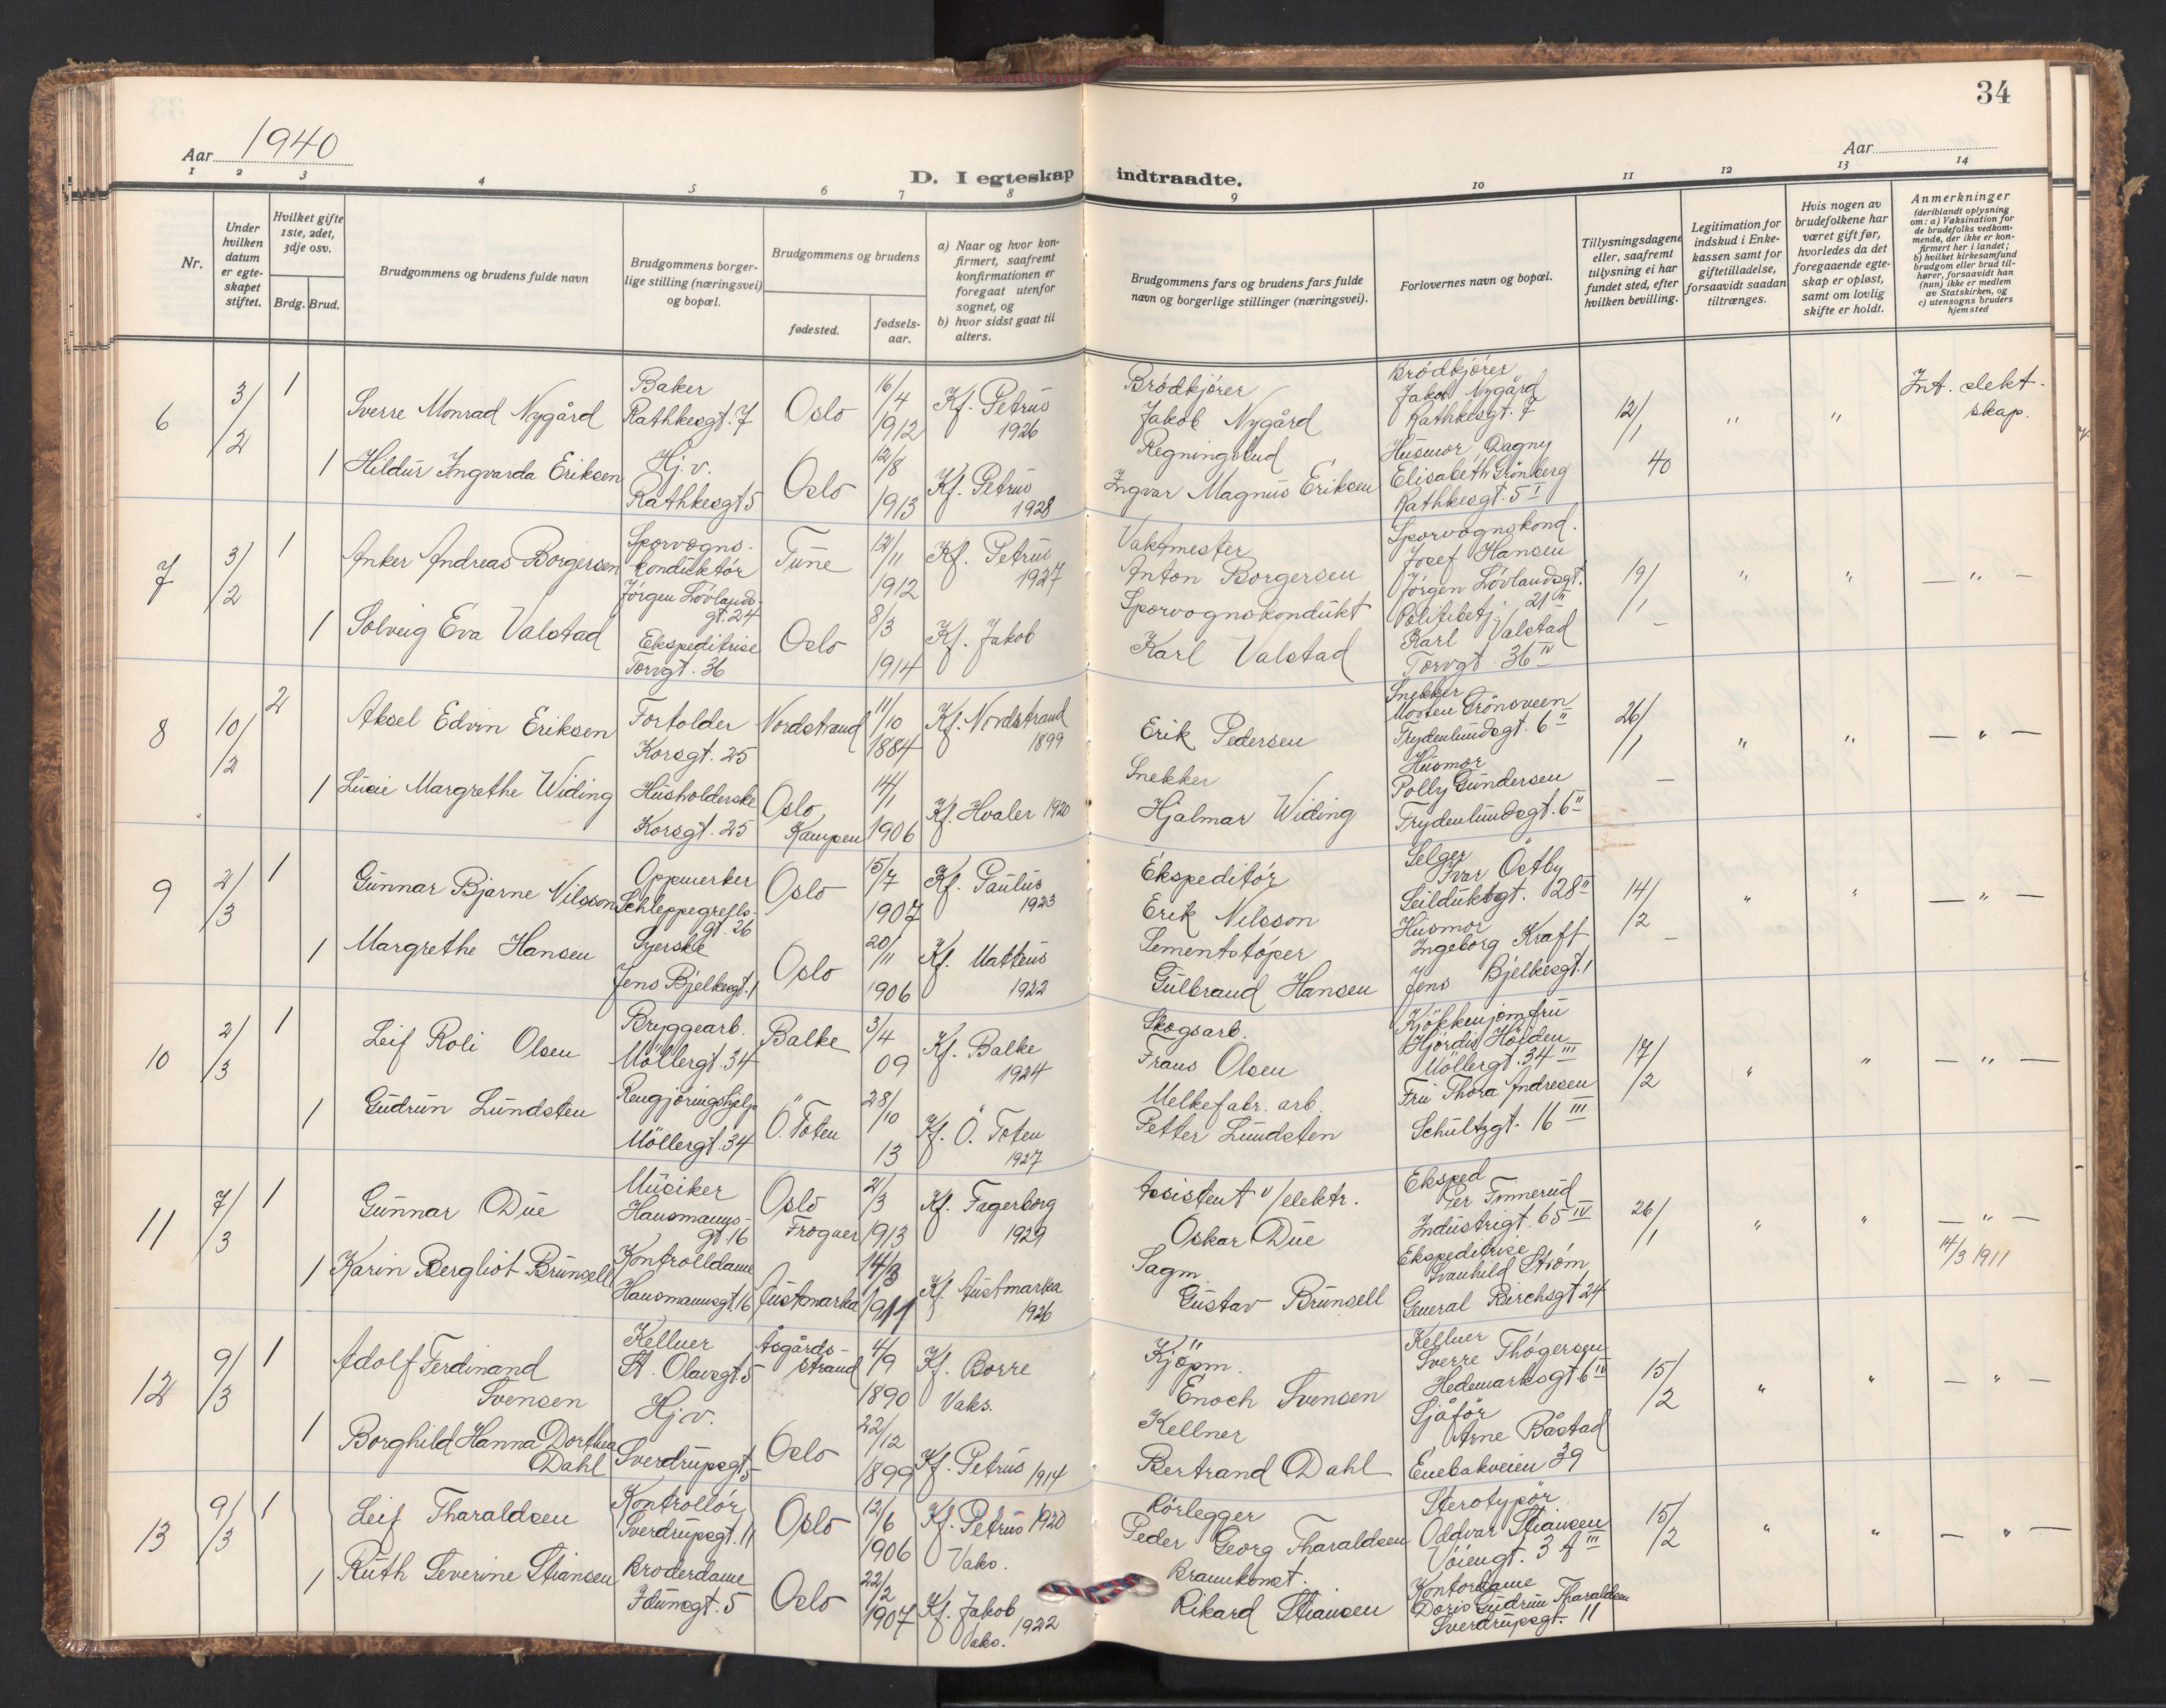 34
Aar 1940
Aar
D. I egteskap indtraadte.
1 2 3 4 5 6 7 8 9 10 11 12 13 14
Nr.
Under hvilken datum er egteskapet stiftet.
Hvilket gifte 1ste, 2det, 3dje osv.
Brdg. Brud.
Brudgommens og brudens fulde navn
Brudgommens borgerlige stilling (næringsvei) og bopæl.
Brudgommens og brudens
fødested.
fødselsaar.
a) Naar og hvor konfirmert, saafremt konfirmationen er foregaat utenfor sognet, og
b) hvor sidst gaat til alters.
Brudgommens fars og brudens fars fulde navn og borgerlige stillinger (næringsvei).
Forlovernes navn og bopæl.
Tillysningsdagene eller, saafremt tillysning ei har fundet sted, efter hvilken bevilling.
Legitimation for indskud i Enkekassen samt for giftetilladelse, forsaavidt saadan tiltrænges.
Hvis nogen av brudefolkene har været gift før, hvorledes da det foregaaende egteskap er opløst, samt om lovlig skifte er holdt.
Anmerkninger
(deriblandt oplysning om: a) Vaksination for de brudefolks vedkommende, der ikke er konfirmert her i landet; b) hvilket kirkesamfund brudgom eller brud tilhører, forsaavidt han (hun) ikke er medlem av Statskirken, og c) utensogns bruders hjemsted
6 3/2 1 Sverre Monrad Nygård Baker Rathkesgt. 7 Oslo 16/4 1912 Kf. Petrus 1926 Brödkjører Jakob Nygård Brödkjører Jakob Nygård Rathkesgt. 7 12/1 40 " " Int. slektskap.
1 Hildur Ingvarda Eriksen Hj. v. Rathkesgt 5 Oslo 12/8 1913 Kf. Petrus 1928 Regningsbud Ingvar Magnus Eriksen Husmor Dagny Elisabeth Grönberg Rathkesgt. 5 I
7 3/2 1 Anker Andreas Borgersen Sporvogns-konduktör Jörgen Lövlands-gt. 24 Tune 12/11 1912 Kf. Petrus 1927 Vaktmester Anton Borgersen Sporvognskond. Josef Hansen Jörgen Lövlandsgt. 21 II 19/1 - " " - " -
1 Solveig Eva Valstad Ekspeditrise Torvgt. 36 Oslo 8/3 1914 Kf. Jakob Sporvognskondukt Karl Valstad Politibetj. Karl Valstad Torvgt. 36 IV
8 10/2 2 Aksel Edvin Eriksen Fortolder Korsgt. 25 Nordstrand 11/10 1884 Kf. Nordstrand 1899 Erik Pedersen Snekker Morten Grönsveen Frydenlundsgt. 6 II 26/1 - " " - " -
1 Lucie Margrethe Widing Husholderske Korsgt. 25 Oslo Kampen 14/1 1906 Kf. Hvaler 1920 Snekker Hjalmar Widing Husmor Polly Gundersen Frydenlundsgt. 6 II
9 2/3 1 Gunnar Bjarne Nilsson Oppmerker Schleppegrells-gt. 26 Oslo 15/7 1907 Kf. Paulus 1923 Ekspeditör Erik Nilsson Selger Ivar Östby Seilduksgt. 28 II 14/2 - " " - " -
1 Margrethe Hansen Syerske Jens Bjelkesgt. 1 Oslo 20/11 1906 Kf. Matteus 1922 Sementstöper Gulbrand Hansen Husmor Ingeborg Kraft Jens Bjelkesgt. 1
10 2/3 1 Leif Roli Olsen Bryggearb. Möllergt. 34 Balke 3/4 09 Kf. Balke 1924 Skogsarb. Frans Olsen Kjökkenjomfru Hjördis Holden Möllergt. 34 III 17/2 " " - " -
1 Gudrun Lundsten Rengjöringshjelp Möllergt. 34 Ö. Toten 28/10 13 Kf. Ö. Toten 1927 Melkefabr. arb. Petter Lundsten Fru Thora Andresen Schultzgt. 16 III
11 7/3 1 Gunnar Due Musiker Hausmanns-gt. 16 Oslo Frogner 2/3 1913 Kf. Fagerborg 1929 Assistent v/elektr. Oskar Due Eksped Per Finnerud Industrigt. 65 IV 26/1 " " - " -
1 Karin Bergliot Brunsell Kontrolldame Hausmannsgt. 16 Austmarka 14/3 1911 Kf. Austmarka 1926 Sagm. Gustav Brunsell Ekspeditrise Svanhild Ström General Birchsgt 24 14/3 1911
12 9/3 1 Adolf Ferdinand Svensen Kellner St. Olavsgt. 5 Åsgårdsstrand 4/9 1890 Kf. Borre Vaks. Kjöpm. Enoch Svensen Kellner Sverre Thögersen Hedemarksgt. 6 IV 15/2 " " - " -
1 Borghild Hanna Dorthea Dahl Hj. v. Sverdrupsgt. 5 Oslo 22/12 1899 Kf. Petrus 1914 Kellner Bertrand Dahl Sjåför Arne Båstad Enebakveien 39
13 9/3 1 Leif Tharaldsen Kontrollör Sverdrupsgt. 11 Oslo 12/6 1906 Kf. Petrus 1920 Vaks. Rörlegger Peder Georg Tharaldsen Sterotypör Oddvar Stiansen Vöiengt. 3 A III 15/2 " " - " -
1 Ruth Severine Stiansen Broderdame Idunsgt. 5 Oslo 22/2 1907 Kf. Jakob 1922 Vaks. Brannkonst. Rikard Stiansen Kontordame Doris Gudrun Tharaldsen Sverdrupsgt. 11